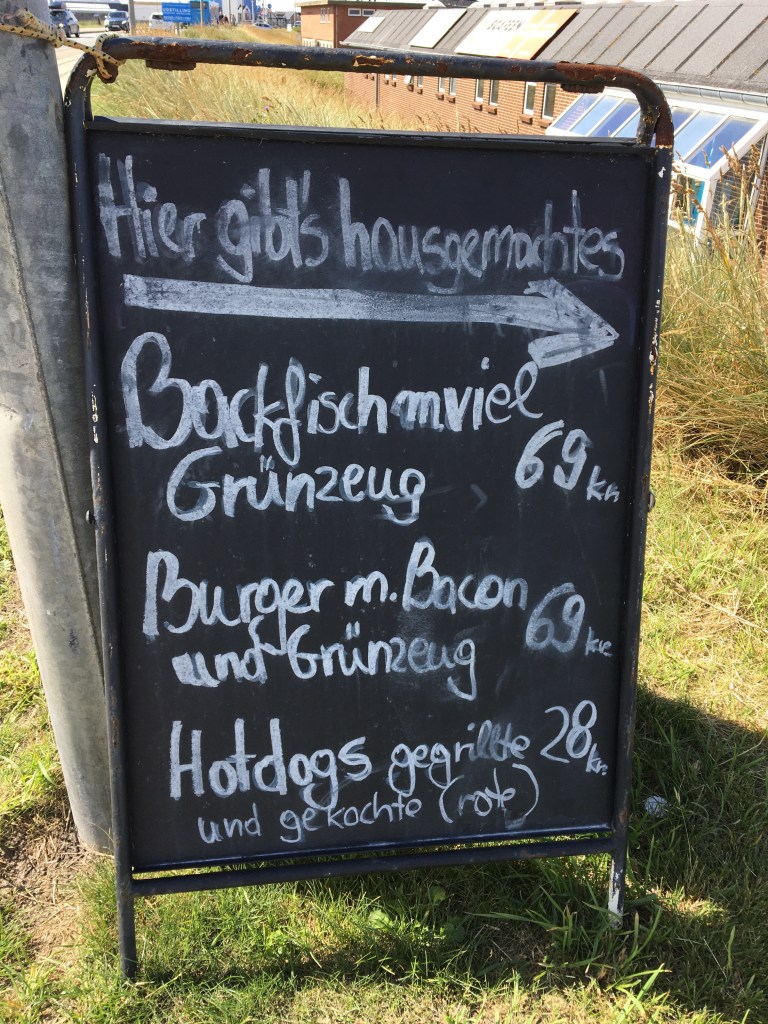 Hier gibt's hausgemachtes
Backfisch m. viel
Grünzeug 69 kr.
Burger m. Bacon
und Grünzeug 69 kr.
Hotdogs gegrillte 28 kr.
und gekochte (rote)